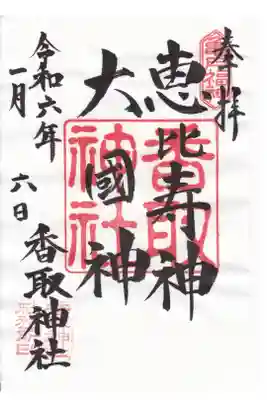 奉拝
恵比寿神
大國神
香取神社
令和六年
一月
六日
香取神社